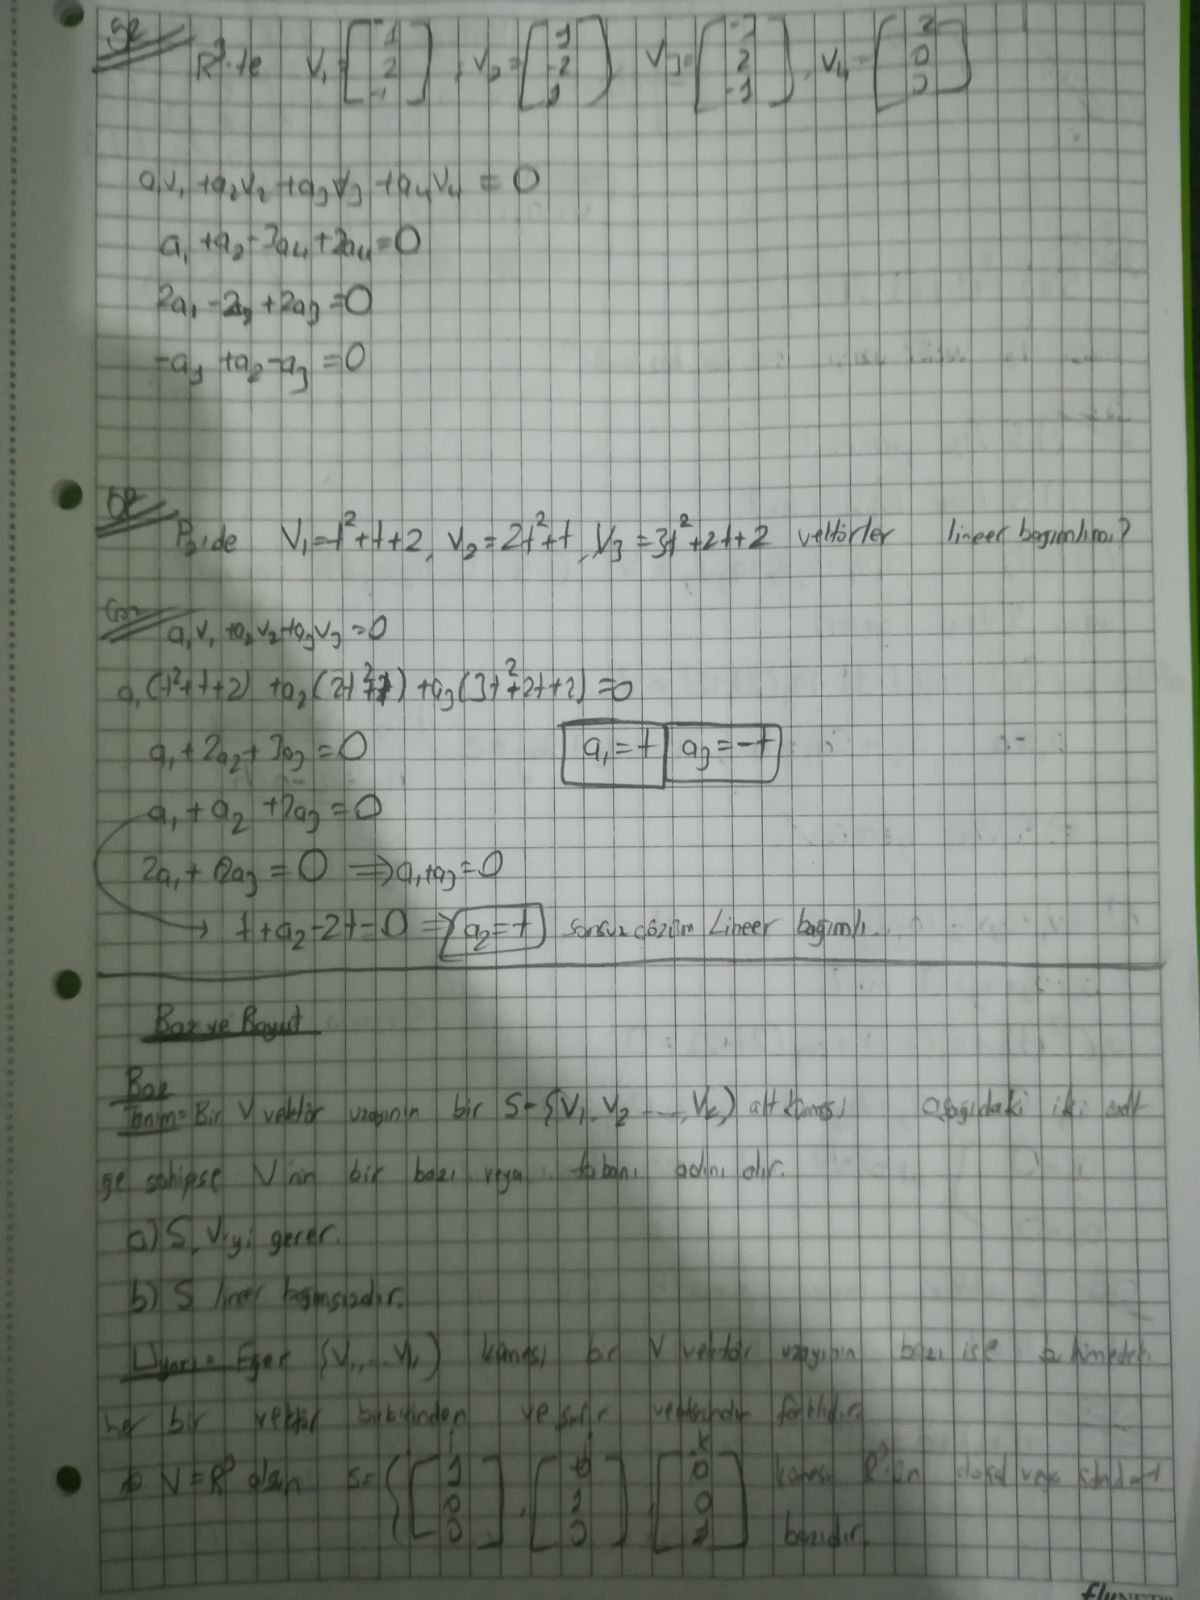 ör R³.te V₁=[1 2 -1], V₂=[1 -2 1], V₃=[-3 2 -1], V₄=[2 0 0]
a₁v₁+a₂v₂+a₃v₃+a₄v₄=0
a₁+a₂-3a₄+2a₄=0
2a₁-2a₂+2a₃=0
-a₁+a₂-a₃=0
ör P₂.de V₁=t²+t+2, V₂=2t²+t, V₃=3t²+2t+2 vektörler lineer bağımlımı?
Çöz a₁v₁+a₂v₂+a₃v₃=0
a₁(t²+t+2)+a₂(2t²+t)+a₃(3t²+2t+2)=0
a₁+2a₂+3a₃=0 a₁=t a₃=-t
a₁+a₂+2a₃=0
2a₁+2a₃=0 ⇒a₁+a₃=0
→ t+a₂-2t=0 ⇒ a₂=t sonsuz çözüm Lineer bağımlı.
Baz ve Boyut
Baz
Tanım=Bir V vektör uzayının bir S={V₁,V₂...,Vₖ} alt kümesi aşağıdaki iki özelli-
ğe sahipse V'nin bir bazı veya tabanı adını alır.
a) S, V'yi gerer.
b) S lineer bağımsızdır.
Uyarı= Eğer {V₁,...Vₖ} kümesi bir V vektör uzayının bazı ise
her bir vektör birbirinden ve sıfır vektöründen farklıdır.
V=R³ olsun S={[1 0 0], [0 1 0], [0 0 1] kümesi R³'ün doğal veya standart
i j k
bazıdır.